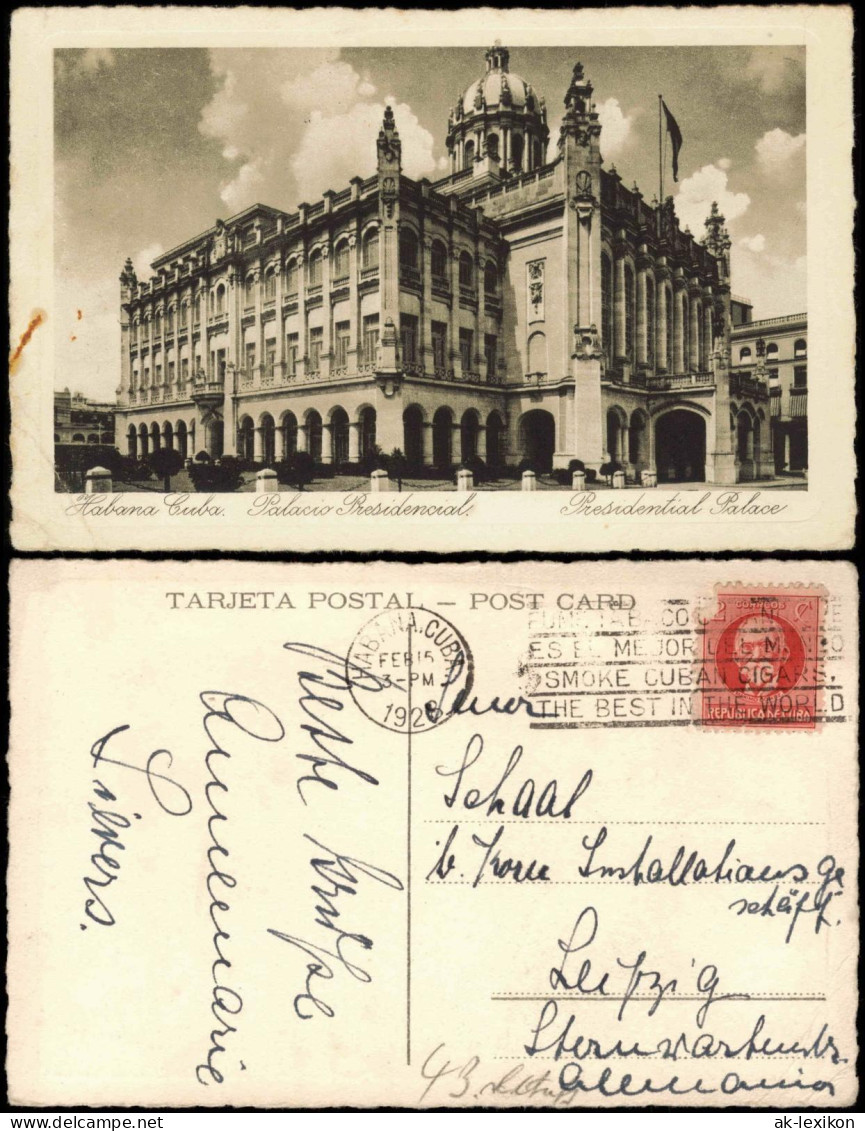 Habana Cuba. Palacio Presidencial.
Presidential Palace
TARJETA POSTAL — POST CARD
HABANA, CUBA
FEB 15
3-PM
192
ES EL MEJOR DEL M
SMOKE CUBAN CIGARS,
THE BEST IN THE WORLD
CORREOS
REPUBLICA DE CUBA
Beste Grüße
Annemarie
Silvers.
Schaal
b. Korn Installationsge
schäft.
Leipzig
Sternwartenstr.
43
Allemania
ak-lexikon